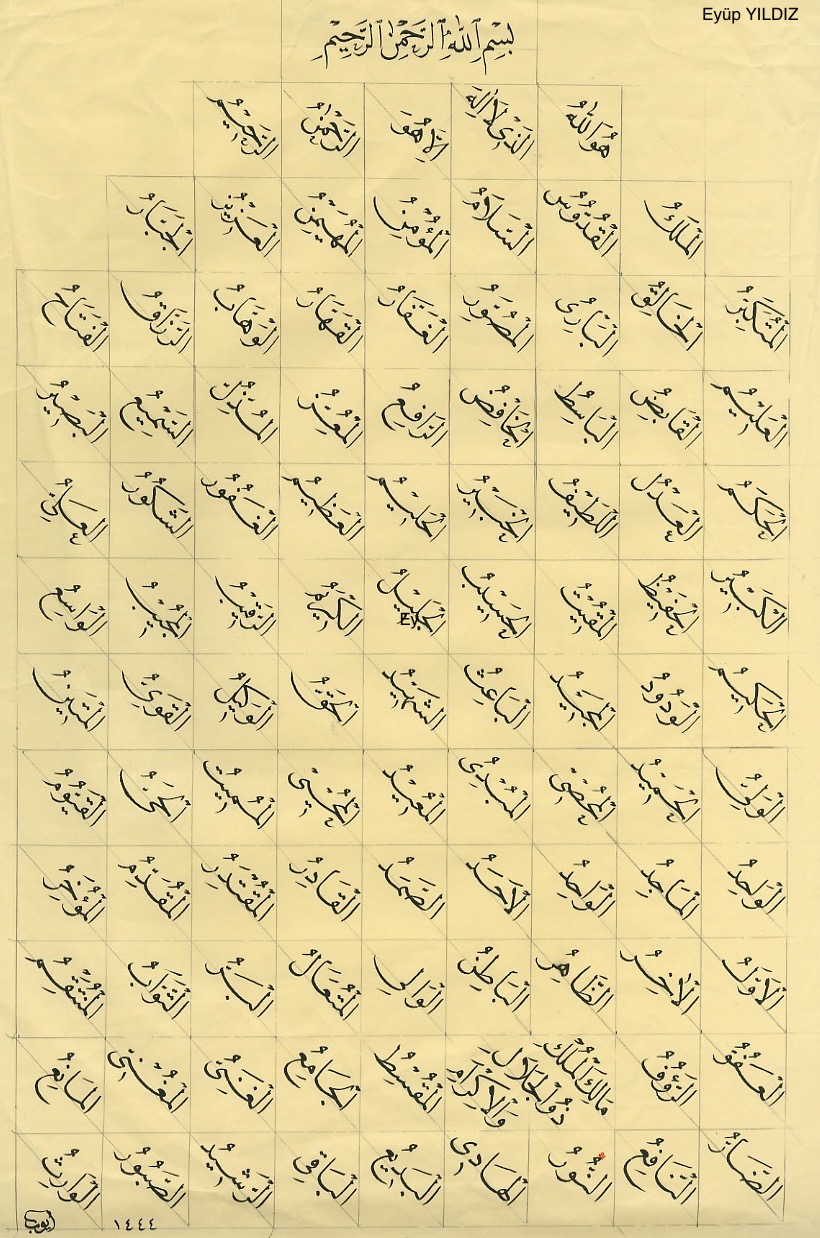 Eyüp YILDIZ
بِسْمِ ٱللّٰهِ ٱلرَّحْمٰنِ ٱلرَّحِيْمِ
هُوَ اللّٰهُ الَّذِى لَا إِلٰهَ إِلَّا هُوَ الرَّحْمٰنُ الرَّحِيْمُ
الْمَلِكُ الْقُدُّوسُ السَّلَامُ الْمُؤْمِنُ الْمُهَيْمِنُ الْعَزِيْزُ الْجَبَّارُ
الْمُتَكَبِّرُ الْخَالِقُ الْبَارِئُ الْمُصَوِّرُ الْغَفَّارُ الْقَهَّارُ الْوَهَّابُ الرَّزَّاقُ الْفَتَّاحُ
الْعَلِيْمُ الْقَابِضُ الْبَاسِطُ الْخَافِضُ الرَّافِعُ الْمُعِزُّ الْمُذِلُّ السَّمِيْعُ الْبَصِيْرُ
الْحَكَمُ الْعَدْلُ اللَّطِيْفُ الْخَبِيْرُ الْحَلِيْمُ الْعَظِيْمُ الْغَفُورُ الشَّكُورُ الْعَلِيُّ
الْكَبِيْرُ الْحَفِيْظُ الْمُقِيْتُ الْحَسِيْبُ الْجَلِيْلُ الْكَرِيْمُ الرَّقِيْبُ الْمُجِيْبُ الْوَاسِعُ
الْحَكِيْمُ الْوَدُودُ الْمَجِيْدُ الْبَاعِثُ الشَّهِيْدُ الْحَقُّ الْوَكِيْلُ الْقَوِيُّ الْمَتِيْنُ
الْوَلِيُّ الْحَمِيْدُ الْمُحْصِى الْمُبْدِئُ الْمُعِيْدُ الْمُحْيِى الْمُمِيْتُ الْحَيُّ الْقَيُّومُ
الْوَاجِدُ الْمَاجِدُ الْوَاحِدُ الْاَحَدُ الصَّمَدُ الْقَادِرُ الْمُقْتَدِرُ الْمُقَدِّمُ الْمُؤَخِّرُ
الْاَوَّلُ الْاٰخِرُ الظَّاهِرُ الْبَاطِنُ الْوَالِى الْمُتَعَالُ الْبَرُّ التَّوَّابُ الْمُنْتَقِمُ
الْعَفُوُّ الرَّؤُفُ مَالِكُ الْمُلْكِ ذُو الْجَلَالِ وَالْاِكْرَامِ الْمُقْسِطُ الْجَامِعُ الْغَنِيُّ الْمُغْنِى الْمَانِعُ
الضَّارُّ النَّافِعُ النُّورُ الْهَادِى الْبَدِيْعُ الْبَاقِى الرَّشِيْدُ الصَّبُورُ الْوَارِثُ
١٤٤٤ ايوب